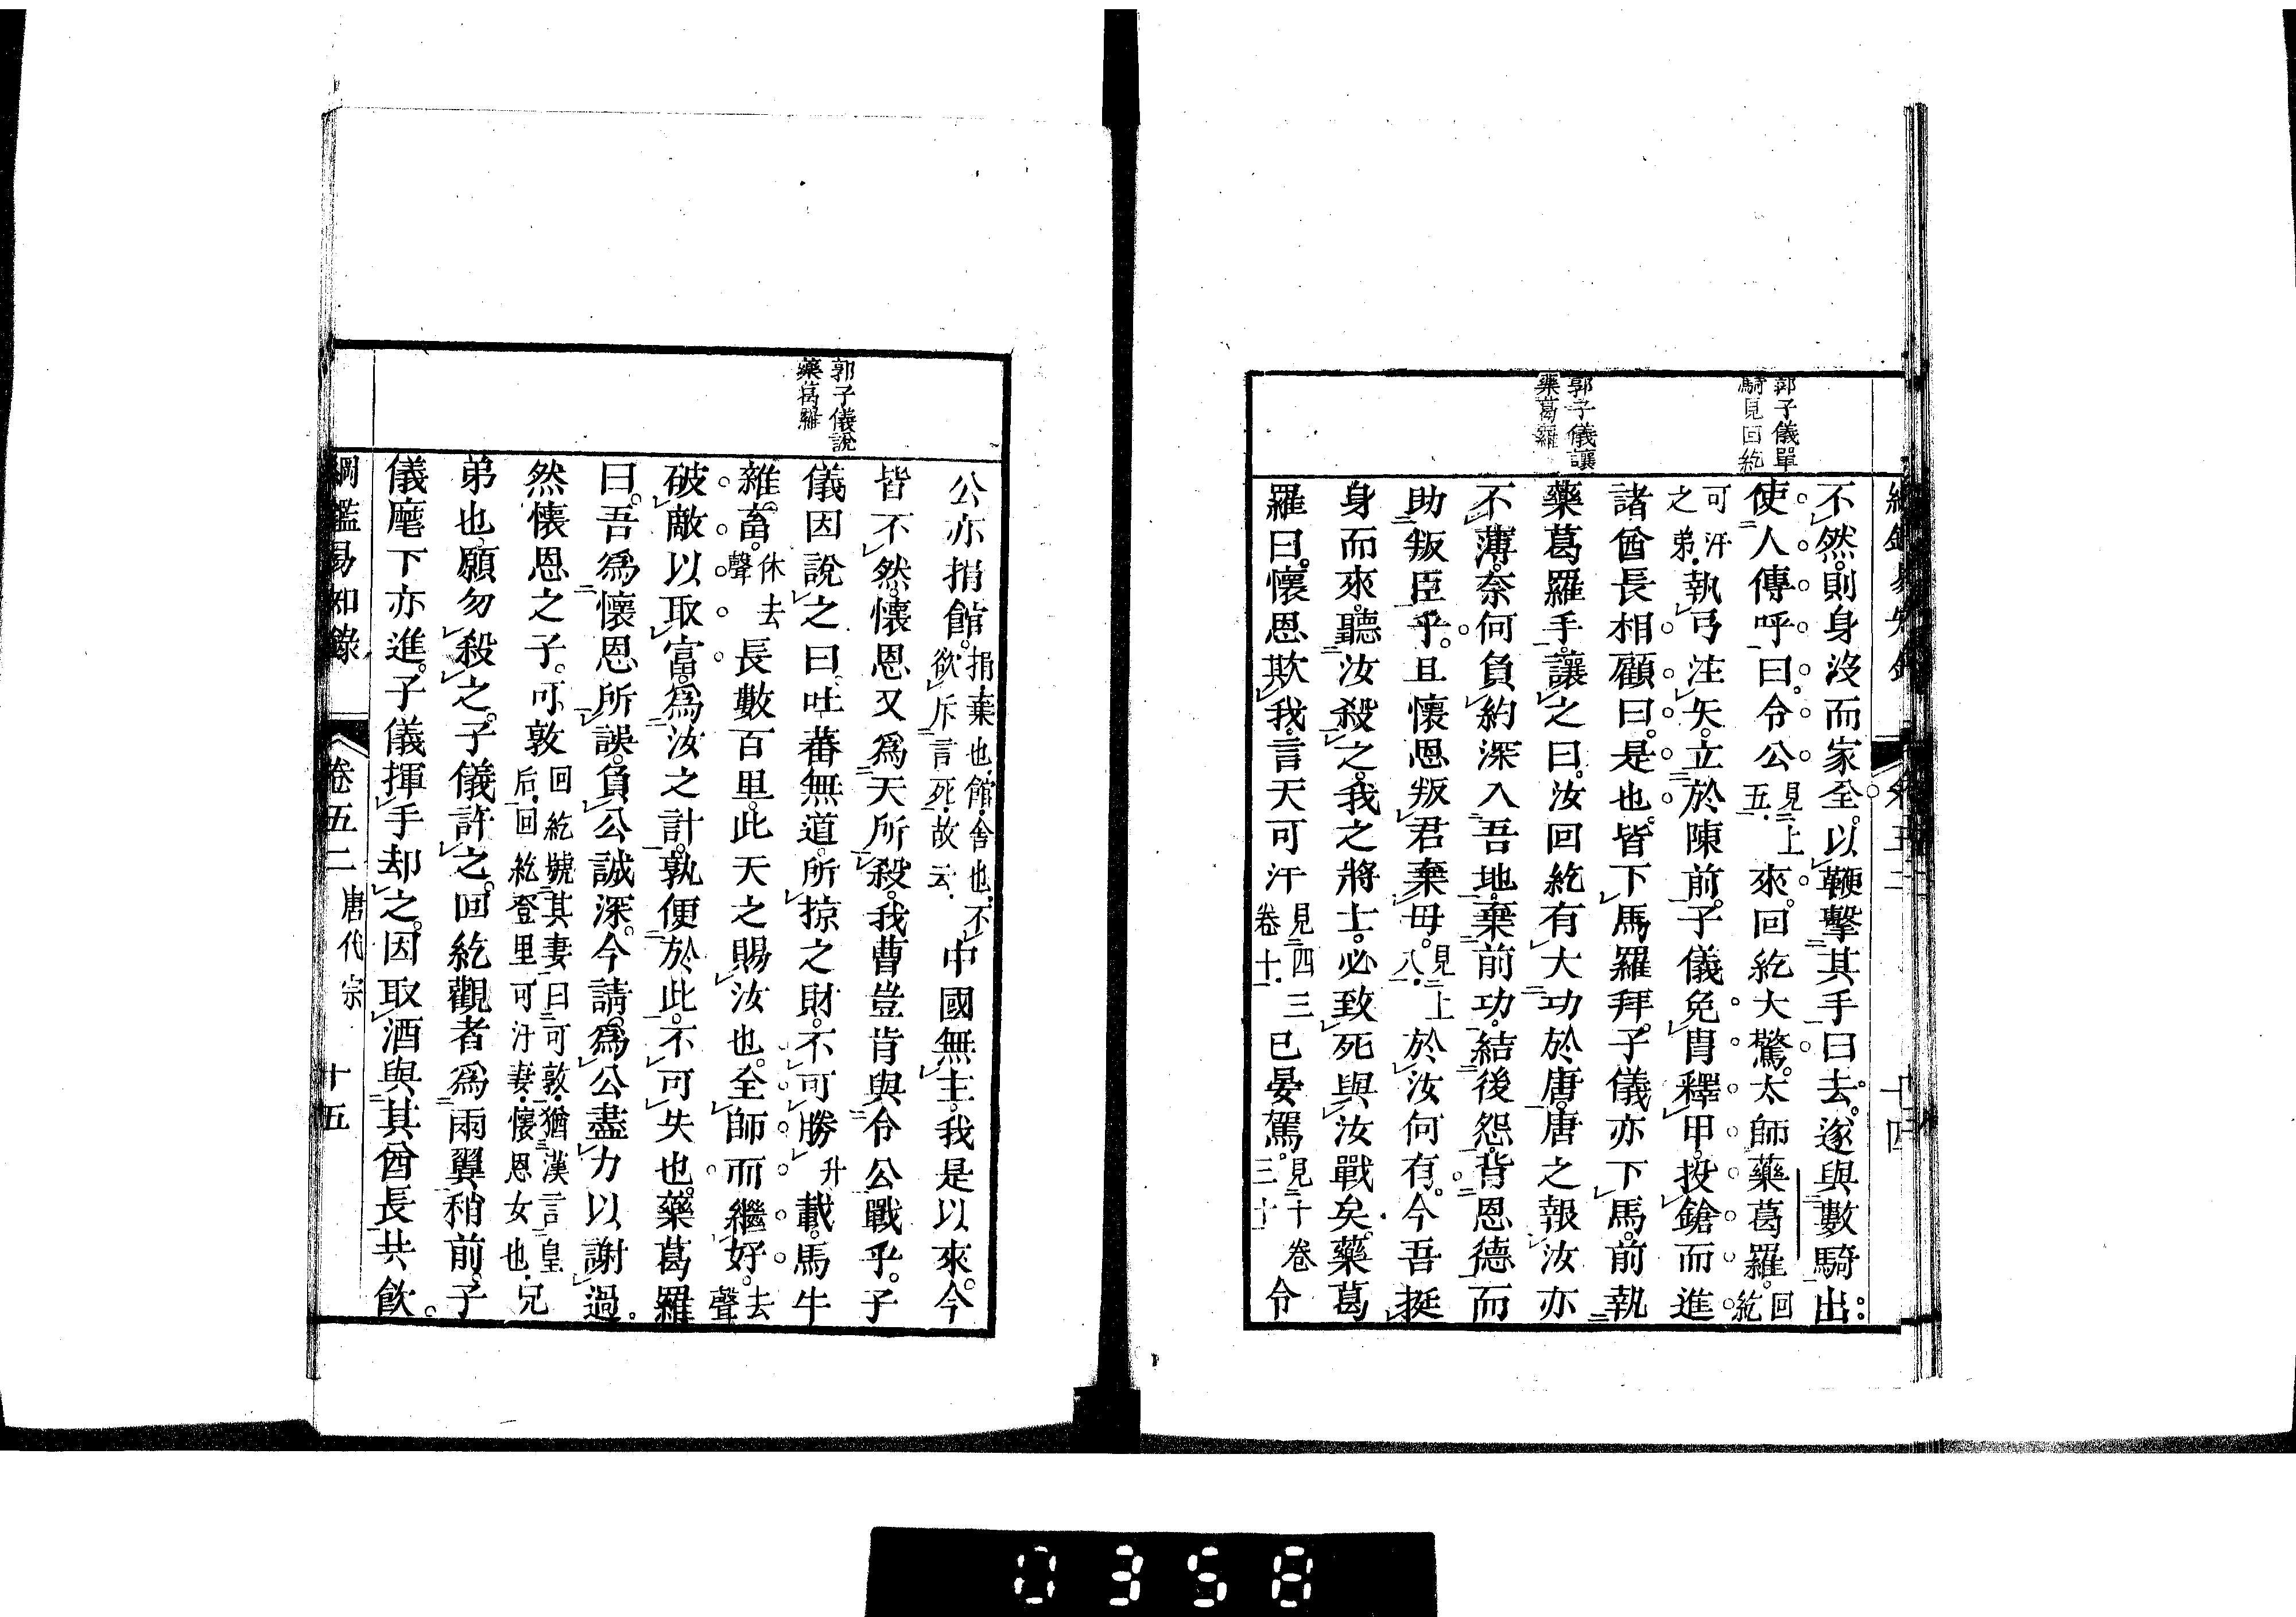 郭子儀單
騎見回紇
郭子儀讓
藥葛羅
不然。則身沒而家全。以鞭擊其手曰。去。遂與數騎出。
使人傳呼曰。令公見上五來。回紇大驚。太師藥葛羅。回紇
可汗之弟。執弓注矢。立於陳前。子儀免冑釋甲。投鎗而進。
諸酋長相顧曰。是也。皆下馬羅拜。子儀亦下馬。前執
藥葛羅手。讓之曰。汝回紇有大功於唐。唐之報汝亦
不薄。奈何負約。深入吾地。棄前功。結後怨。背恩德而
助叛臣乎。且懷恩叛君棄母。見上八。於汝何有。今吾挺
身而來。聽汝殺之。我之將士。必致死與汝戰矣。藥葛
羅曰。懷恩欺我。言天可汗見四三卷十一已晏駕。見十卷三十令
郭子儀說
藥葛羅
公亦捐館。捐棄也。館。舍也。不欲斥言死。故云。中國無主。我是以來。今
皆不然。懷恩又爲天所殺。我曹豈肯與令公戰乎。子
儀因說之曰。吐蕃無道。所掠之財。不可勝升載。馬牛
雜畜。休去聲長數百里。此天之賜汝也。全師而繼好。去聲
破敵以取富。爲汝之計。孰便於此。不可失也。藥葛羅
曰。吾爲懷恩所誤。負公誠深。今請爲公盡力以謝過。
然懷恩之子。可敦回紇號其妻曰可敦。猶漢言皇后。回紇登里可汗妻。懷恩女也。兄
弟也。願勿殺之。子儀許之。回紇觀者爲兩翼。稍前。子
儀麾下亦進。子儀揮手却之。因取酒與其酋長共飲。
綱鑑易知錄 卷五二 唐代宗 十五
0358